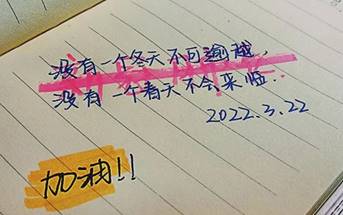 没有一个冬天不可逾越，
没有一个春天不会来临．
2022.3.22
加油!!